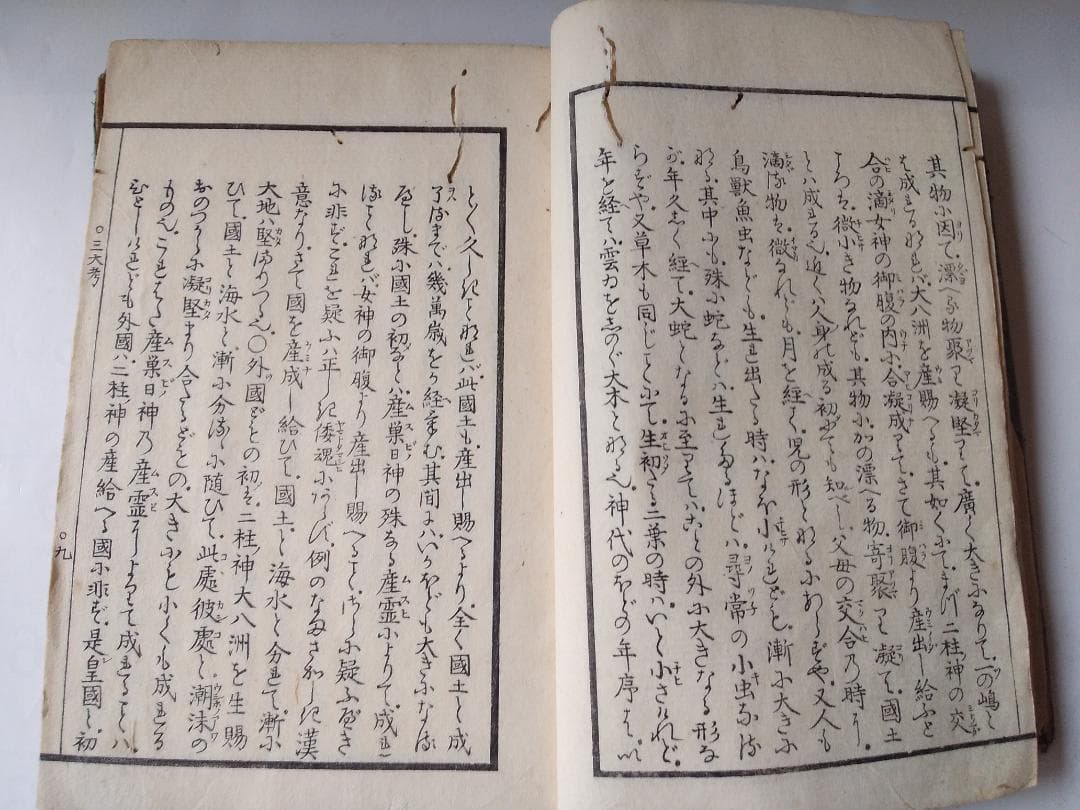 其物小因て漂へる物聚り凝堅りて廣く大きになりて一の嶋と
は成れる那れバ大八洲を産賜へるも其如くにてまづ二柱神の交
合の滴女神の御腹の内小合凝成りてさて御腹より産出し給ふと
ころは微小き物なれども其物小加の漂へる物寄聚り凝て國土
とハ成れる也近くハ人身の成る初にても知べし父母の交合乃時に
滴る物は微なれども月を經て兒の形と那るにあらずや又人も
鳥獸魚虫なども生れ出たる時ハなほ小けれども漸小大きに
那る其中にも殊小蛇などハ生れたるほどハ尋常の小虫なる
が年久しく經て大蛇となるに至りてハことの外小大きなる形な
らずや又草木も同じことにて生初たる二葉の時ハいと小さけれど
年を經てハ雲力をしのぐ大木と那る也神代のほどの年序はいと
とく久しきと那れバ此國土も産出し賜へるより全く國土と成
了るまでハ幾萬歳をか經けむ其間にハいかほども大きになる
べし殊小國土の初などハ産巣日神の殊なる産靈小よりて成れ
るなれバ女神の御腹より産出し賜へること さらに疑ふべき
に非ずこれを疑ふハ正しき倭魂にあらず例のなまさかしき漢
意なりさて國を産成し給ひて國土と海水と分れて漸に
大地ハ堅まりつる也〇外國どもの初は二柱神大八洲を生賜
ひて國土と海水と漸小分るゝ小随ひて此處彼處と潮沫の
おのづから小凝堅まり合たるどもの大きにも小くも成れる
もの也これはた産巣日神乃産靈によりて成れることハ
ひとしけれども外國ハ二柱神の産給へる國小非ず是皇國と初
〇三大考
〇九